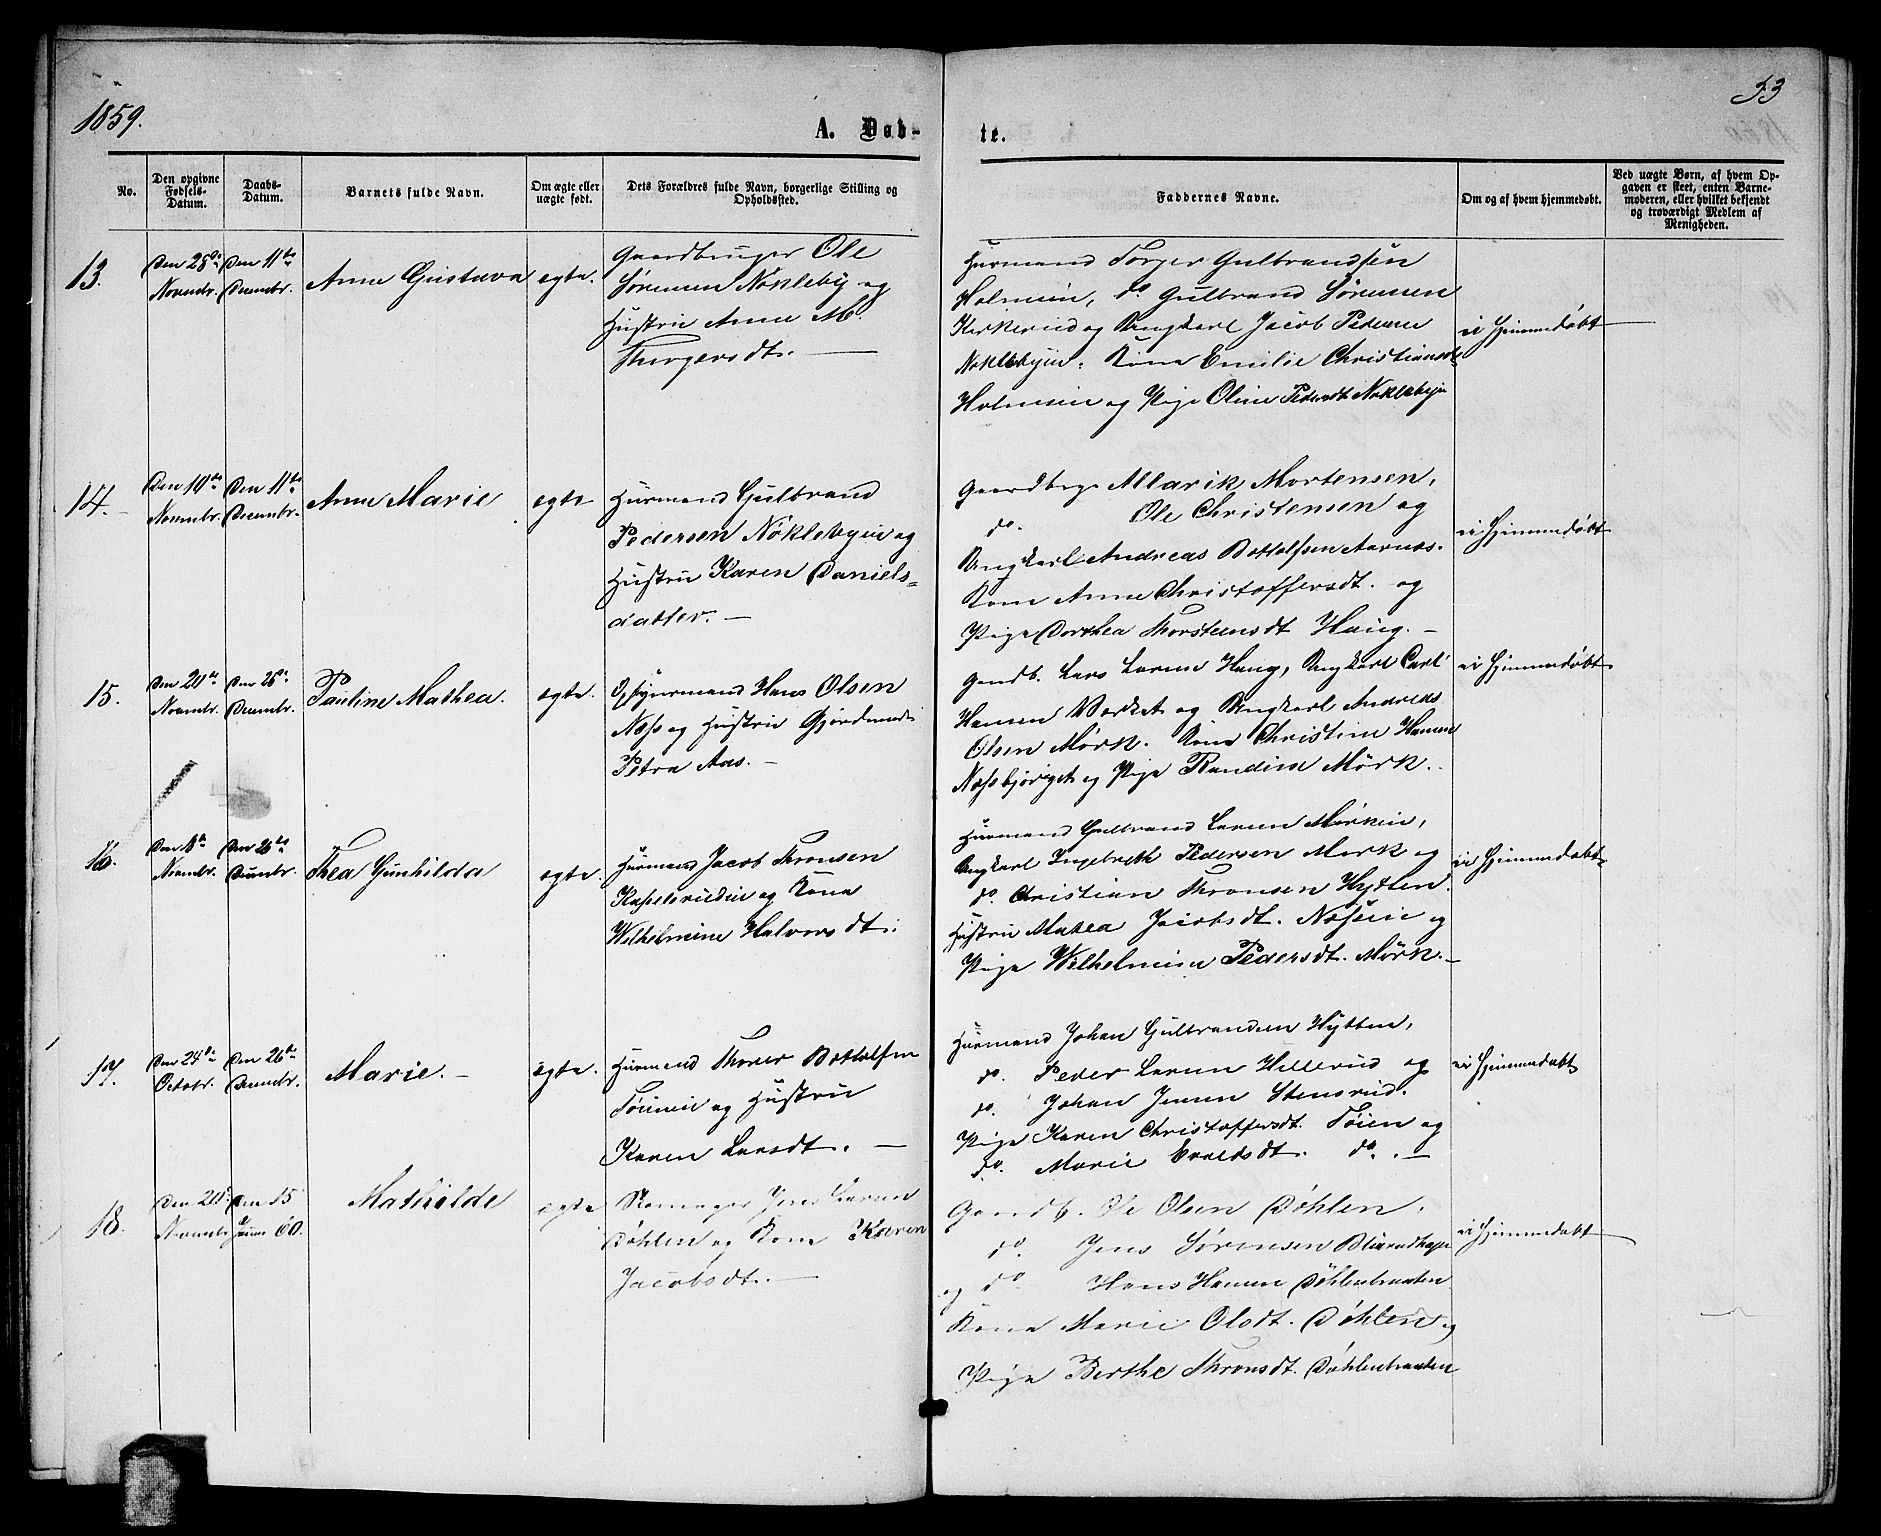 1859.
33
A. Døb-
te.
No.
Den opgivne Fødsels-Datum.
Daabs-Datum.
Barnets fulde Navn.
Om ægte eller uægte født.
Dets Forældres fulde Navn, borgerlige Stilling og Opholdssted.
Faddernes Navne.
Om og af hvem hjemmedøbt.
Ved uægte Børn, af hvem Opgaven er skeet, enten Barnemoderen, eller hvilket bekjendt og troværdigt Medlem af Menigheden.
13.
Den 28de Novembr.
Den 11te Decembr.
Anne Gustava
egte.
Gaardbruger Ole
Sørensen Nökleby og
Hustru Anne M.
Thorgersdt.
Huusmand Torger Gulbrandsen
Holmein, do Gulbrand Sörensen
Kirkerud og Ungkarl Jacob Pedersen
Noklebyein. Kone Emilie Christiansdt
Holmein og Pige Oline Pedersdt Noklebyein
ei Hjemmedöbt
14.
Den 10de Novembr.
Den 11te Decembr.
Anne Marie
egte
Huusmand Gulbrand
Pedersen Nöklebyein og
Hustru Karen Daniels-
datter.
Gaardbrgr Allarik Mortensen,
do. Ole Christensen og
Ungkarl Andreas Bottolfsen Aarnæs.
Kone Anne Christoffersdt. og
Pige Dorthea Thorsteensdt Haug.
ei Hjemmedöbt
15.
Den 20de Novembr.
Den 26de Decembr.
Pauline Mathea.
egte.
Huusmand Hans Olsen
Næss og Hustru
Petra Aas.
Gaardb. Lars Larsen Haug, Ungkarl Carl
Hansen Værket og Ungkarl Andreas
Olsen Mörk. Kone Christine Hansen
og Pige Randine Mörk.
ei Hjemmedöbt
16.
Den 8de Novembr.
Den 26de Decembr.
Thea Gunhilda
egte.
Huusmand Jacob Thronsen
og Kone
Wilhelmine Halvorsdt.
Huusmand Gulbrand Larsen Mörkein,
Ungkarl Ingebreth Pedersen Mørk og
do. Christian Thronsen Hytten.
Hustru Mathea Jacobsdt. Næsseie og
Pige Wilhelmine Pedersdt. Mörk.
ei Hjemmedøbt
17.
Den 24de Octobr.
Den 26de Decembr.
Marie.
egte.
Huusmand Thorer Bottolfsen
og Hustru
Karen Larsdt.
Huusmand Johan Gulbrandsen Hytten,
do. Peder Larsen Hillerud og
do. Johan Jensen Stensrud.
Pige Karen Christoffersdt. Töien og
do. Marie Evaldsdt. do.
ei Hjemmedøbt
18.
Den 20de Novembr
Den 15 60.
Mathilde
egte
Skomager Jens Larsen
Döhlen og Kone Karen
Jacobsdt.
Gaardb. Ole Olsen Döhlen,
do. Jens Sörensen
og do Hans Hansen Döhlenbraaten
Kone Marie Olsdt. Döhlen og
Pige Berthe Thronsdt. Döhlenbraaten
ei Hjemmedøbt